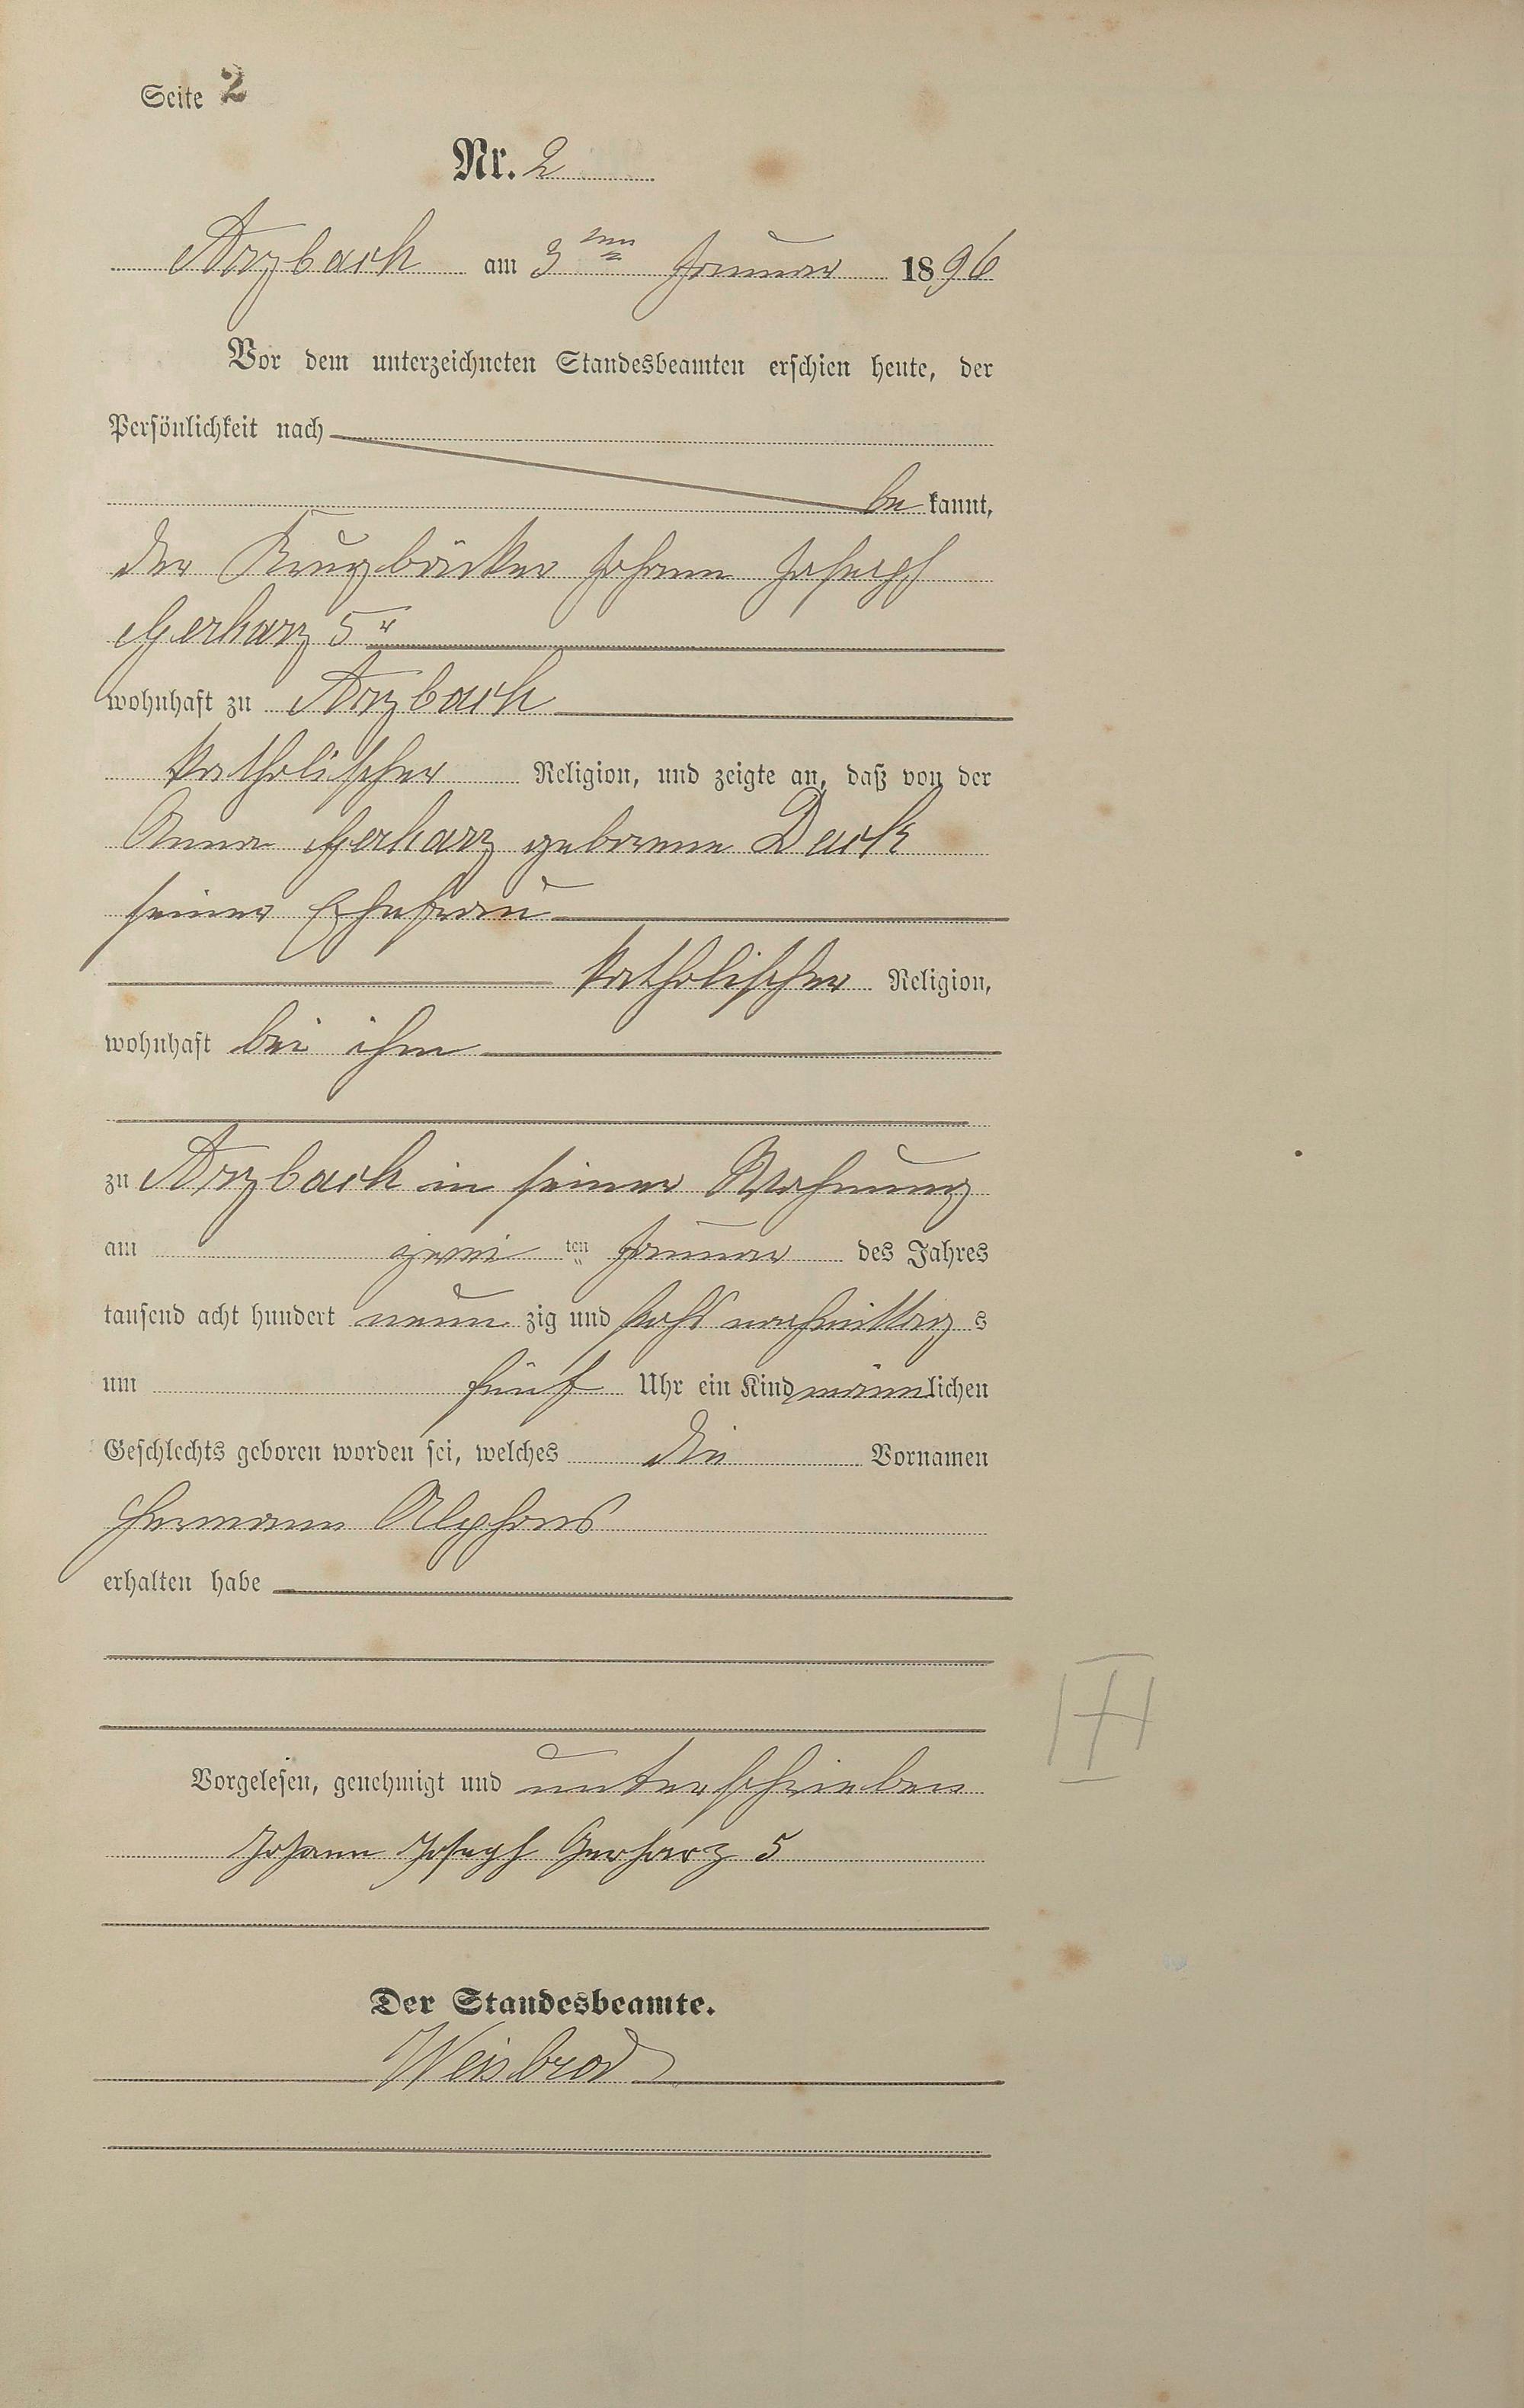 Seite 2
Nr. 2
Arzbach am 3ten Januar 1896
Vor dem unterzeichneten Standesbeamten erschien heute, der
Persönlichkeit nach
be kannt,
der Krugbäcker Johann Joseph
Gerharz 5r
wohnhaft zu Arzbach
katholischer Religion, und zeigte an, daß von der
Anna Gerharz geborenen Deck
seiner Ehefrau
katholischer Religion,
wohnhaft bei ihm
zu Arzbach in seiner Wohnung
am zwei ten Januar des Jahres
tausend acht hundert neun zig und sechs nachmittag s
um fünf Uhr ein Kind männlichen
Geschlechts geboren worden sei, welches die Vornamen
Hermann Alphons
erhalten habe
Vorgelesen, genehmigt und unterschrieben
Johann Joseph Gerharz 5
Der Standesbeamte.
Weisbrod